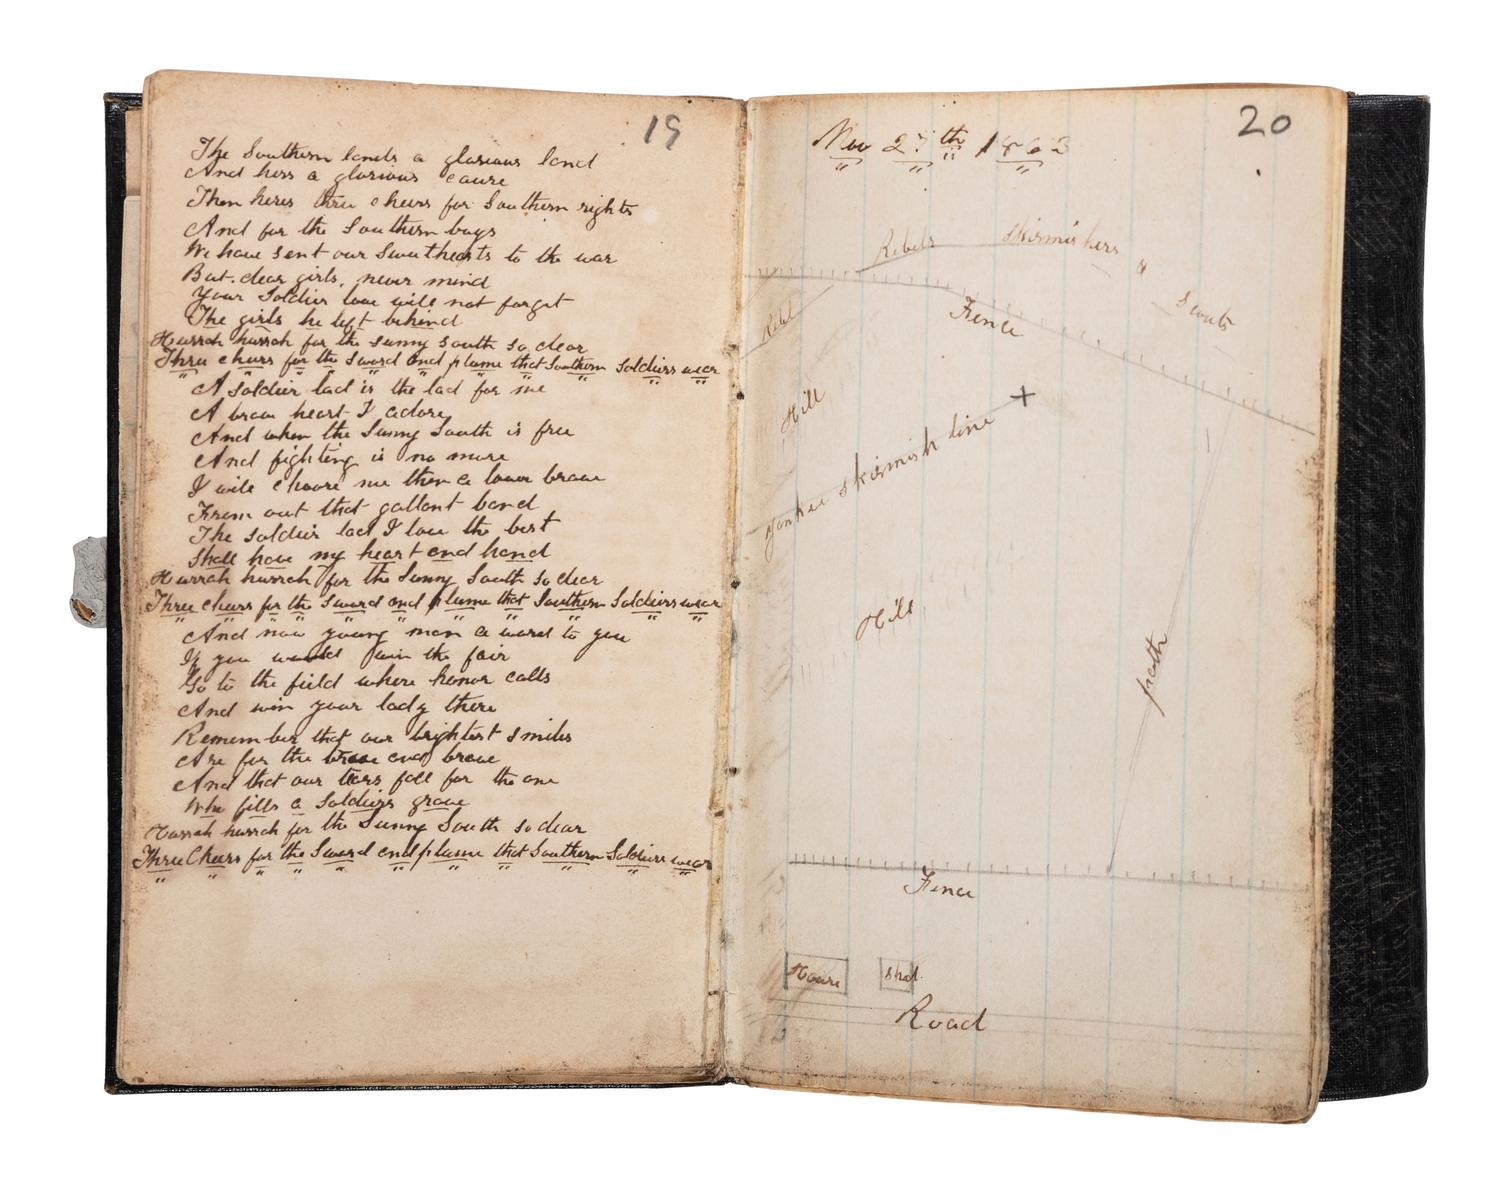 19
The Southern lands a glorious land
And hers a glorious cause
Then heres three cheers for Southern rights
And for the Southern boys
We have sent our Sweethearts to the war
But dear girls, never mind
Your Soldier love will not forget
The girls he left behind
Hurrah hurrah for the sunny south so dear
Three cheers for the sword and plume that Southern Soldiers wear
A soldier lad is the lad for me
A brave heart I adore
And when the Sunny South is free
And fighting is no more
I will choose me then a lover brave
From out that gallant band
The soldier lad I love the best
Shall have my heart and hand
Hurrah hurrah for the Sunny South so dear
Three cheers for the Sword and plume that Southern Soldiers wear
And now young man a word to you
If you would win the fair
Go to the field where honor calls
And win your lady there
Remember that our brightest smiles
Are for the and brave
And that our tears fall for the one
Who fills a Soldiers grave
Hurrah hurrah for the Sunny South so dear
Three Cheers for the Sword and plume that Southern Soldiers wear
20
Nov 27th 1863
Rebels skirmishers "
Scouts
Fence
Rebel
Hill
Yankee skirmish line +
Hill
path
Fence
House Shed
Road